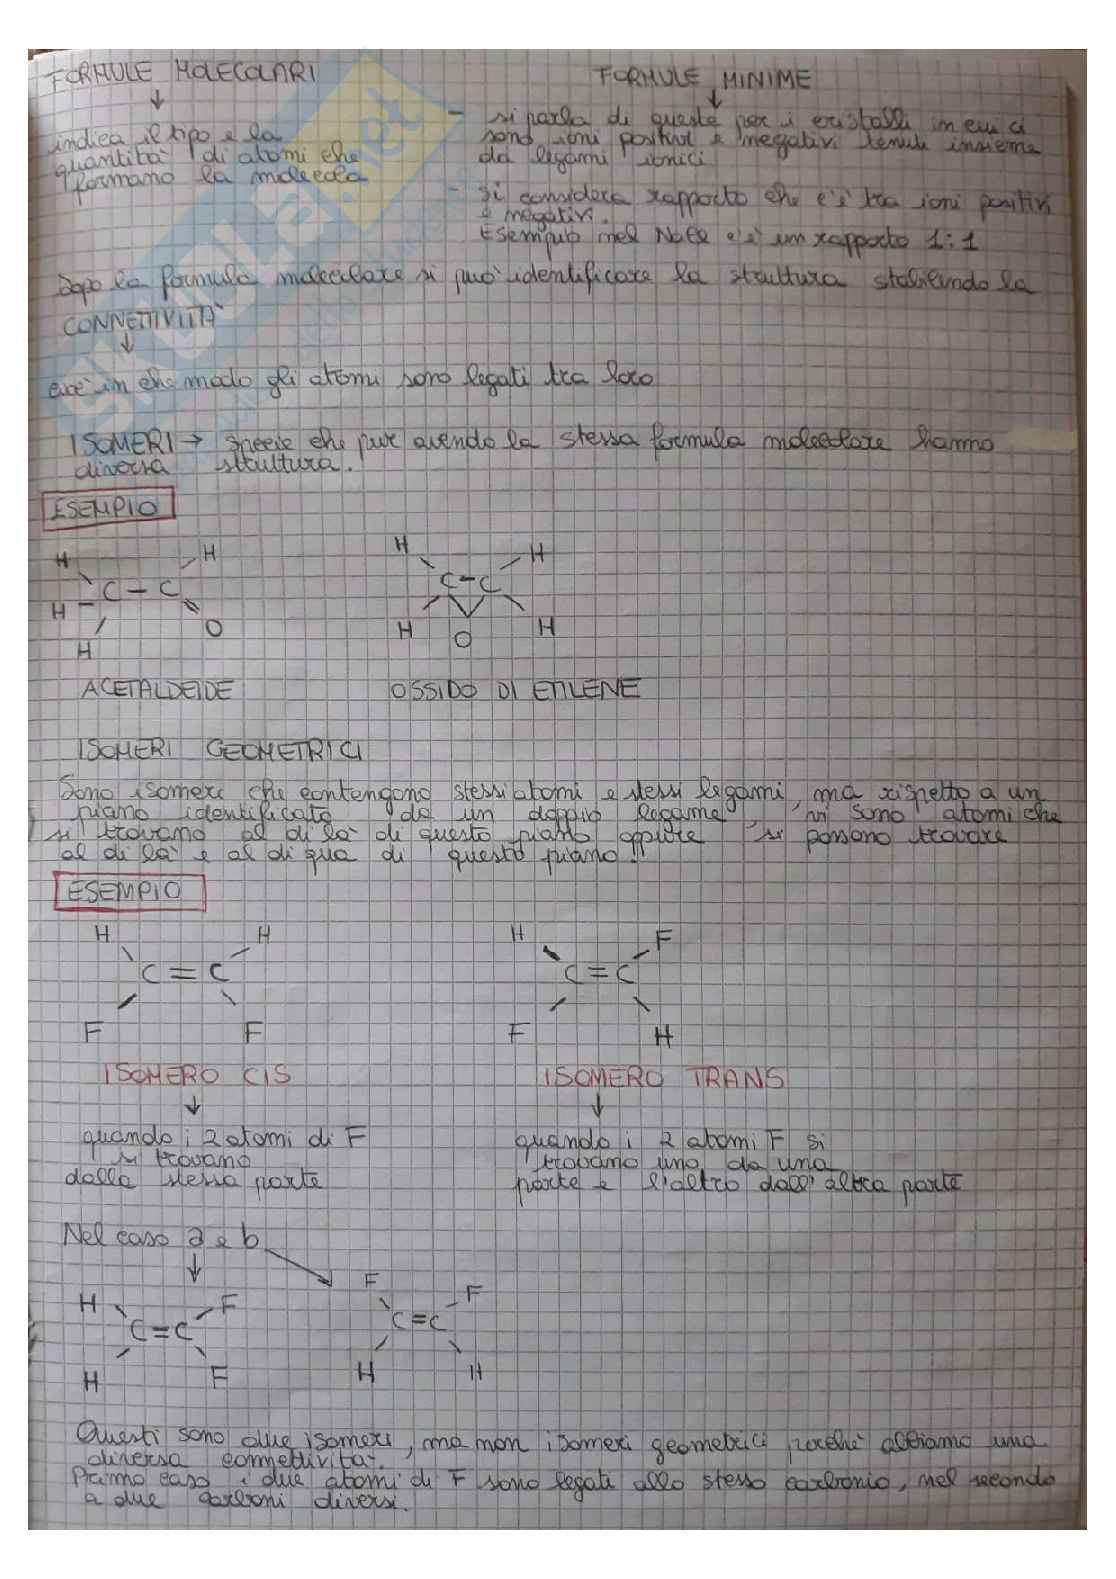 FORMULE MOLECOLARI
↓
indica il tipo e la
quantità di atomi che
formano la molecola
FORMULE MINIME
↓
- si parla di queste per i cristalli in cui ci
sono ioni positivi e negativi tenuti insieme
da legami ionici
- si considera rapporto che c'è tra ioni positivi
e negativi.
Esempio nel NaCl c'è un rapporto 1:1
Dopo la formula molecolare si può identificare la struttura stabilendo la
CONNETTIVITÀ
↓
cioè in che modo gli atomi sono legati tra loro
ISOMERI → specie che pur avendo la stessa formula molecolare hanno
diversa struttura.
ESEMPIO
H H
C - C
H
H O
H H
C - C
H O H
ACETALDEIDE
OSSIDO DI ETILENE
ISOMERI GEOMETRICI
Sono isomeri che contengono stessi atomi e stessi legami, ma rispetto a un
piano identificato da un doppio legame, vi sono atomi che
si trovano al di là di questo piano oppure si possono trovare
al di là e al di qua di questo piano!!
ESEMPIO
H H
C = C
F F
H F
C = C
F H
ISOMERO CIS
↓
quando i 2 atomi di F
si trovano
dalla stessa parte
ISOMERO TRANS
↓
quando i 2 atomi F si
trovano uno da una
parte e l'altro dall'altra parte
Nel caso a e b
↓
H F
C = C
H F
F F
C = C
H H
Questi sono due isomeri, ma non isomeri geometrici perché abbiamo una
diversa connettività.
Primo caso i due atomi di F sono legati allo stesso carbonio, nel secondo
a due carboni diversi.
SKUOLA.net